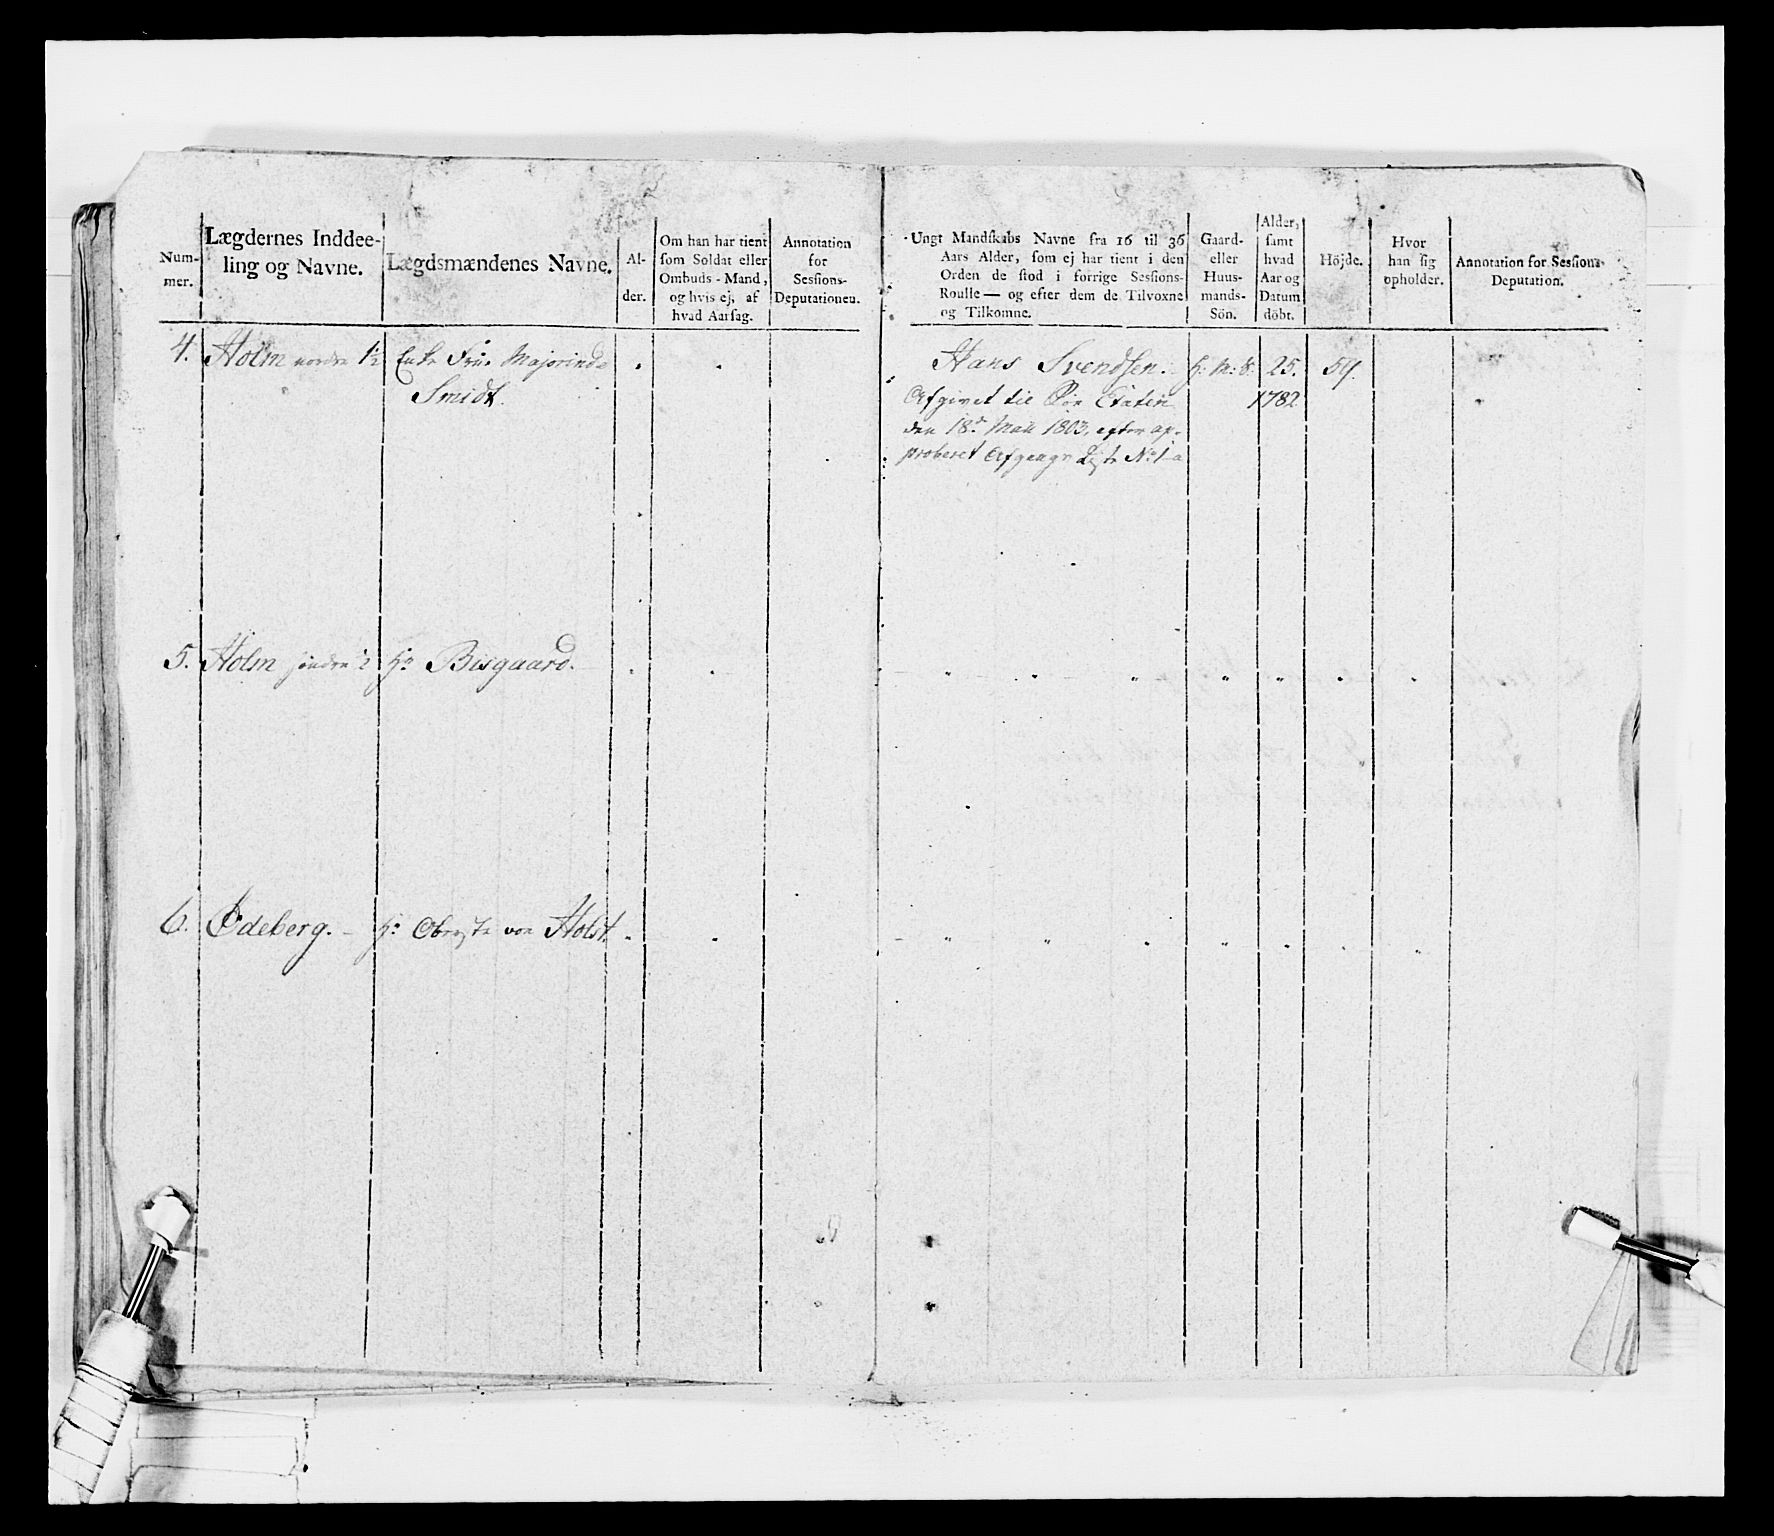 Num-
mer.
Lægdernes Inddee-
ling og Navne.
Lægdsmændenes Navne.
Al-
der.
Om han har tient
som Soldat eller
Ombuds-Mand,
og hvis ej, af
hvad Aarsag.
Annotation
for
Sessions-
Deputationen.
Ungt Mandskabs Navne fra 16 til 36
Aars Alder, som ej har tient i den
Orden de stod i forrige Sessions-
Roulle — og efter dem de Tilvoxne
og Tilkomne.
Gaard-
eller
Huus-
mands-
Sön.
Alder,
samt
hvad
Aar og
Datum
döbt.
Höjde.
Hvor
han sig
opholder.
Annotation for Sessions-
Deputation.
4. Holm nordre 1½ Enke Frue Majorinde
Smidt.
Hans Svendsen. 25. 59.
Afgivet til Søe Etaten 1782
den 18de Maii 1803, efter ap-
proberet Afgangs Liste No 1
5. Holm søndre ½ Hr Bisgaard.
6. Ødeberg. - Hr Oberste von Holst.